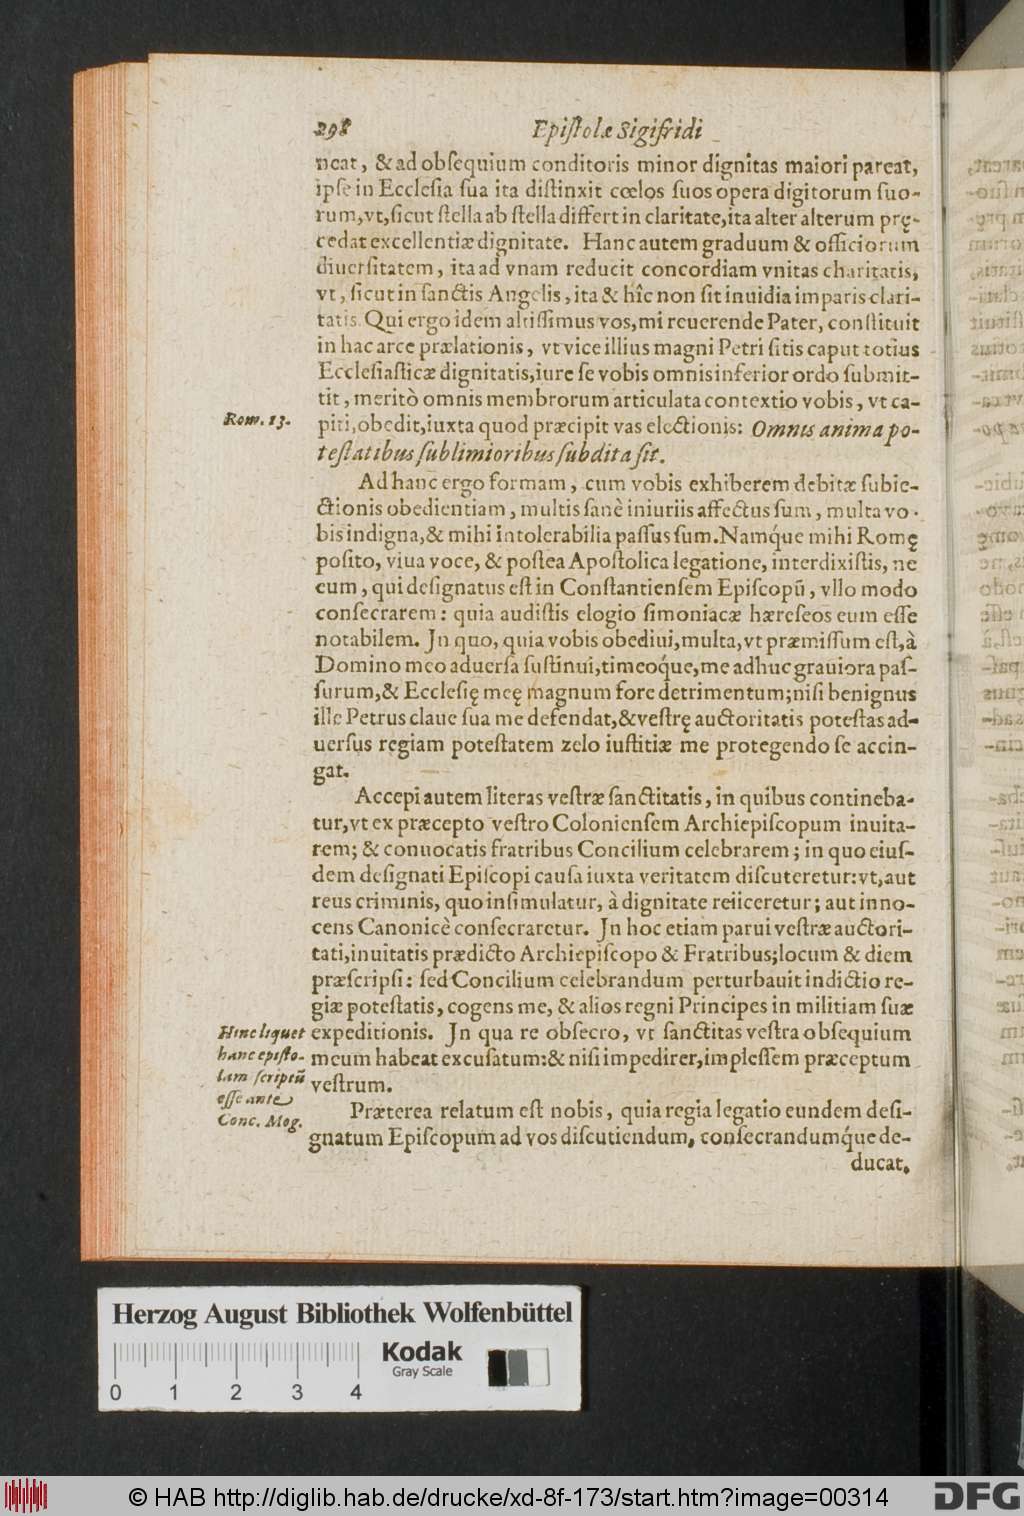 298 Epiſtolæ Sigifridi
neat, & ad obſequium conditoris minor dignitas maiori pareat,
ipſe in Eccleſia ſua ita diſtinxit cœlos ſuos opera digitorum ſuo-
rum, vt, ſicut ſtella ab ſtella differt in claritate, ita alter alterum prę-
cedat excellentiæ dignitate. Hanc autem graduum & officiorum
diuerſitatem, ita ad vnam reducit concordiam vnitas charitatis,
vt, ſicut in ſanctis Angelis, ita & hîc non ſit inuidia imparis clari-
tatis. Qui ergo idem altiſſimus vos, mi reuerende Pater, conſtituit
in hac arce prælationis, vt vice illius magni Petri ſitis caput totius
Eccleſiaſticæ dignitatis, iure ſe vobis omnis inferior ordo ſubmit-
tit, meritò omnis membrorum articulata contextio vobis, vt ca-
Rom. 13.
piti, obedit, iuxta quod præcipit vas electionis: Omnis anima po-
teſtatibus ſublimioribus ſubdita ſit.
Ad hanc ergo formam, cum vobis exhiberem debitæ ſubie-
ctionis obedientiam, multis ſanè iniuriis affectus ſum, multa vo-
bis indigna, & mihi intolerabilia paſſus ſum. Namq́ue mihi Romę
poſito, viua voce, & poſtea Apoſtolica legatione, interdixiſtis, ne
eum, qui deſignatus eſt in Conſtantienſem Epiſcopū, vllo modo
conſecrarem: quia audiſtis elogio ſimoniacæ hæreſeos eum eſſe
notabilem. Jn quo, quia vobis obediui, multa, vt præmiſſum eſt, à
Domino meo aduerſa ſuſtinui, timeoq́ue, me adhuc grauiora paſ-
ſurum, & Eccleſię meę magnum fore detrimentum; niſi benignus
ille Petrus claue ſua me defendat, & veſtrę auctoritatis poteſtas ad-
uerſus regiam poteſtatem zelo iuſtitiæ me protegendo ſe accin-
gat.
Accepi autem literas veſtræ ſanctitatis, in quibus contineba-
tur, vt ex præcepto veſtro Colonienſem Archiepiſcopum inuita-
rem; & conuocatis fratribus Concilium celebrarem; in quo eiuſ-
dem deſignati Epiſcopi cauſa iuxta veritatem diſcuteretur: vt, aut
reus criminis, quo inſimulatur, à dignitate reiiceretur; aut inno-
cens Canonicè conſecraretur. Jn hoc etiam parui veſtræ auctori-
tati, inuitatis prædicto Archiepiſcopo & Fratribus; locum & diem
præſcripſi: ſed Concilium celebrandum perturbauit indictio re-
giæ poteſtatis, cogens me, & alios regni Principes in militiam ſuæ
expeditionis. Jn qua re obſecro, vt ſanctitas veſtra obſequium
meum habeat excuſatum: & niſi impedirer, impleſſem præceptum
veſtrum.
Hinc liquet
hanc epiſto-
lam ſcriptū
eſſe ante
Conc. Mog.
Præterea relatum eſt nobis, quia regia legatio eundem deſi-
gnatum Epiſcopum ad vos diſcutiendum, conſecrandumq́ue de-
ducat.
Herzog August Bibliothek Wolfenbüttel
Kodak
Gray Scale
0 1 2 3 4
© HAB http://diglib.hab.de/drucke/xd-8f-173/start.htm?image=00314
DFG